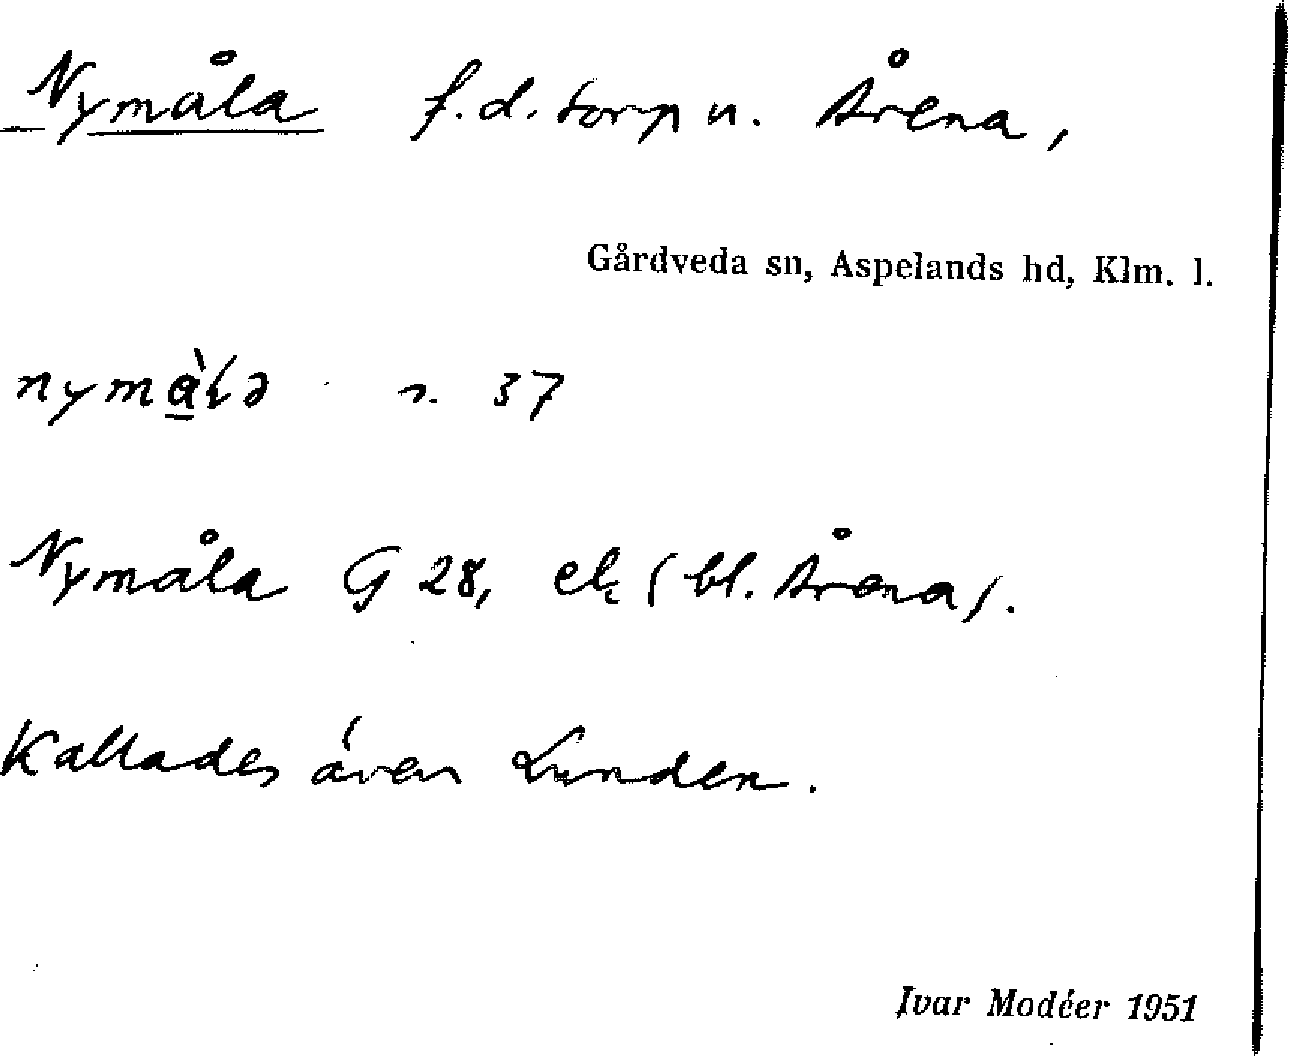 Nymåla f.d. torp u. Årena,
Gårdveda sn, Aspelands hd, Klm. l.
s. 37
Nymåla G 28, ek (bl. Årena).
Kallades även Lunden.
Ivar Modéer 1951